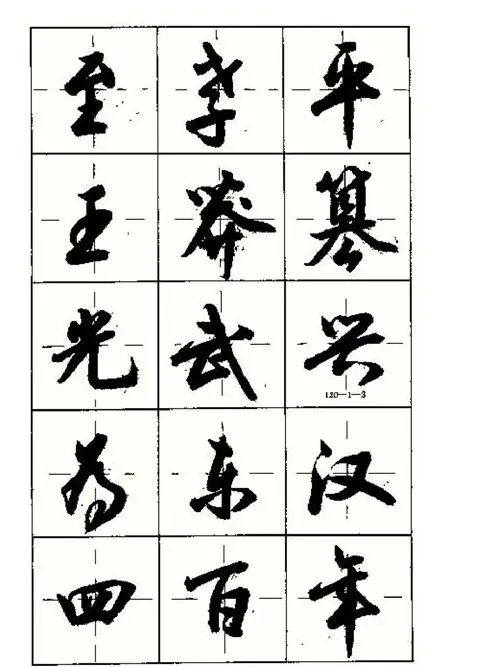 至孝平
王莽篡
光武兴
120—1—3
为东汉
四百年